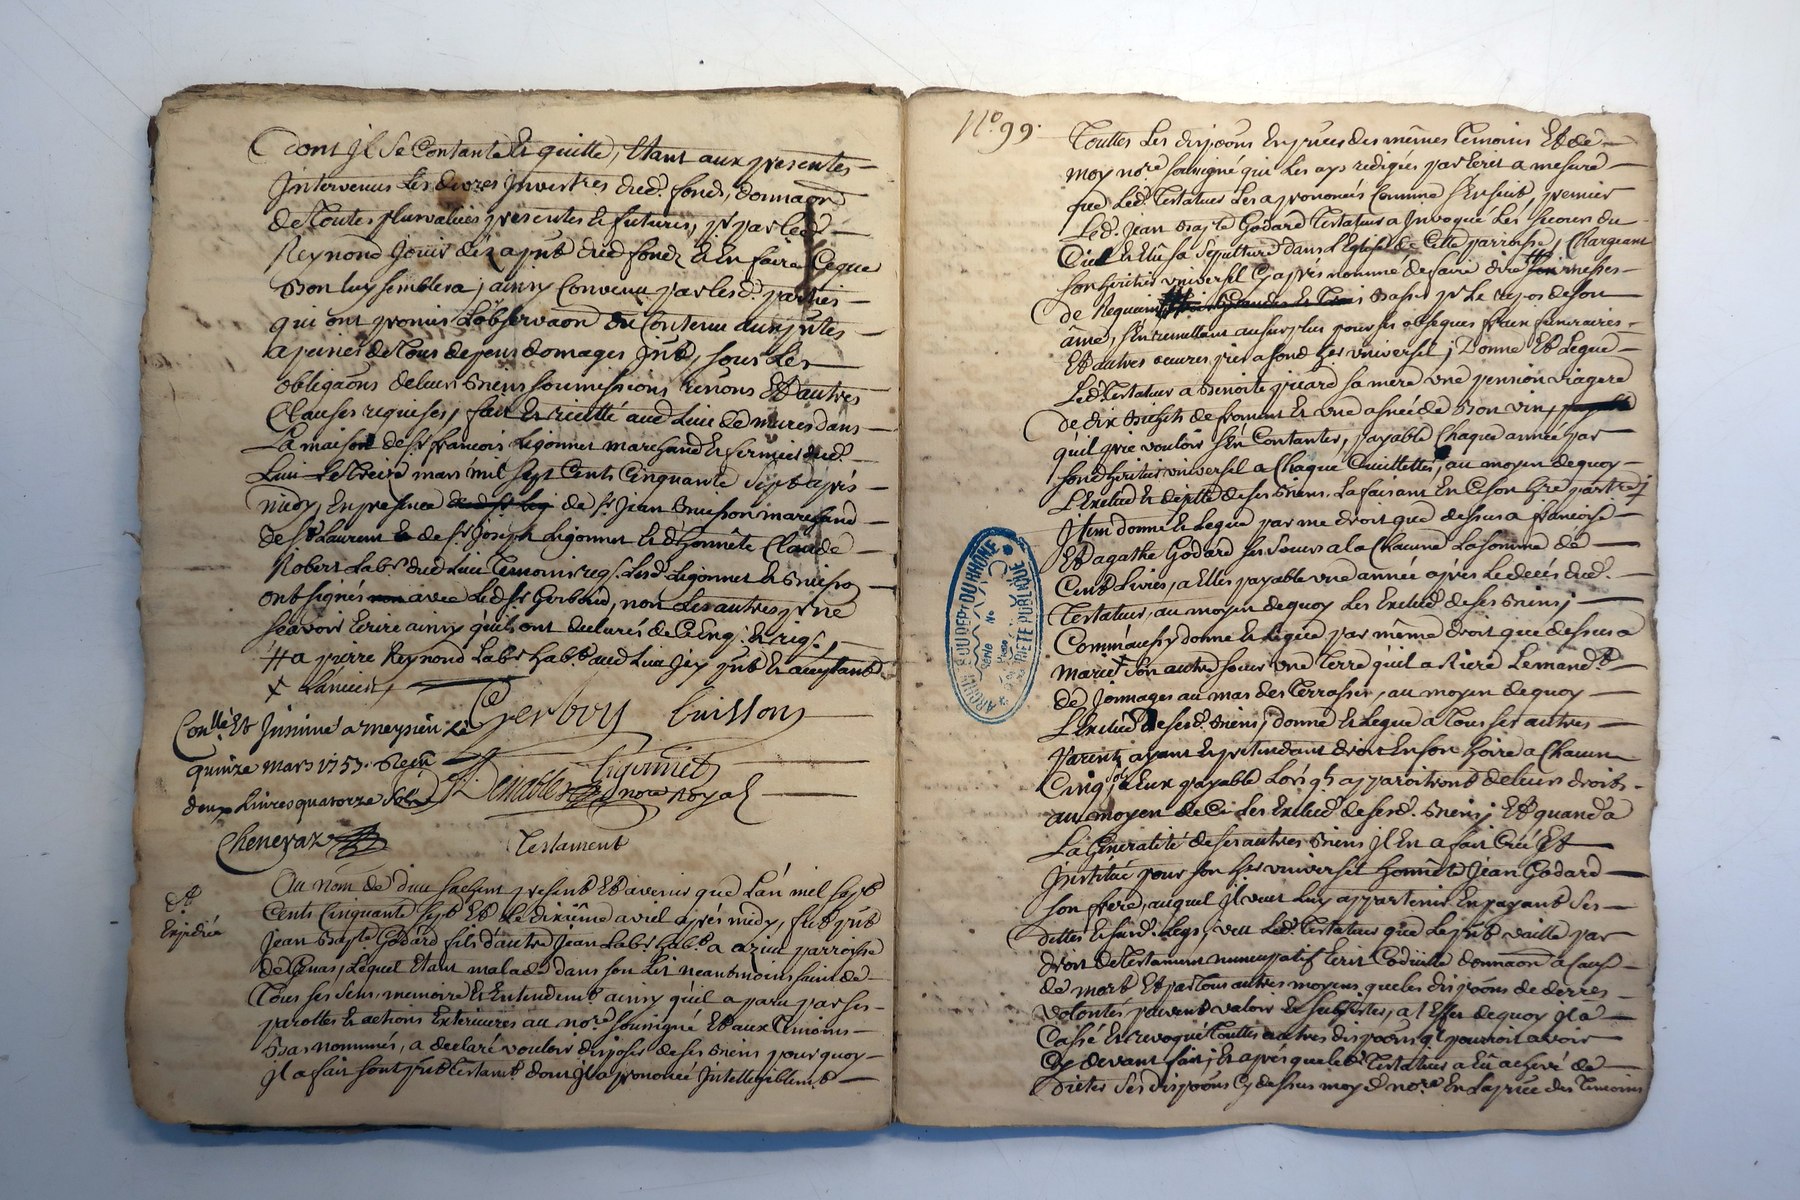 dont Jl se Contante et quitte, Etant aux presentes
Jntervenus Les d. Jnvesties dud. fond, donnaon
de Toutes plusvalües presentes et futures, pr par led.
Reynond Jouir dez a pnt dud fond et en faire Ceque
Bon luy semblera, ainsy Convenu par lesd. parties
qui ont promis L'observaon du Contenu auxpntes
a peines de Tous depens domages Jnts, sous Les
obligaõns de leurs Biens soumissions renons Et autres
Clauses requises, fait et recitté aud Lieu de mures dans
La maison de sr francois Ligonnet marchand et fermier dud.
Lieu Le mars mil sept Cents Cinquante Sept après
midy, En presence de sr Jean Buisson marchand
de St Laurent de sr Joseph Ligonnet et d'honnête Claude
Robert Labr dud Lieu Temoins req. Lesd Ligonnet et Buisson
ont signés avec Led sr Gerboud, non Les autres pr ne
sçavoir Ecrire ainsy qu'ils ont declarés de Ce Enq. et req.
# a pierre Reynond Labr habt aud Lieu Jcy pnt et aceptant
x L'ancien
Gerboy buisson
Conllé Et Jnsinué a meysieu Le
quinze mars 1757. Reçu
Ligonnet
deux Livres quatorze Sols
nore Royal
Chenevaz
Testament
Expedié
Au nom de dieu sachent presents Et avenir que L'an mil Sept
Cents Cinquante Sept Et Le dixième avril après midy, fut pnt
Jean Bapte Godard fils d'autre Jean Labr habt a azieu parroisse
de Genas, Lequel Etant malade dans son Lit neantmoins sain de
Tous ses sens memoire Et Entendemt ainsy qu'il a paru par ses
parolles et actions Exterieures au nore soussigné Et aux Temoins
Bas nommés, a declaré vouloir disposer de ses Biens pourquoy
jl a fait son pnt Testamt dont jl a prononcé Jntelligiblemt
No. 99.
Touttes Les disposons En prnce des mêmes Temoins Et de
moy nore soussigné qui Les ays redigées par Ecrit a mesure
que Led. Testateur Les a prononcés Comme s'Ensuit, premier
Led. Jean Bapte Godard Testateur a Jnvoqué Les secours du
Ciel et Elû sa sépulture dans L'Eglise de Cette parroisse, Chargeant
son heritier universel Cy après nommé de faire dire messes
de Requiem Basses pr Le repos de son
âme, s'En remettant au surplus pour ses obseques fraix funeraires
Et autres oeuvres pies a sond hr universel; Donne Et Legue
Led. Testateur a Benoite picard sa mere une pension viagere
de dix Bichets de froment et une asnée de Bon vin,
qu'il prie vouloir s'En Contanter, payable Chaque année par
sond heritier universel a Chaque Cueillettes, au moyen de quoy
L'Exclud et dejette de ses Biens. La faisant En Ce son hre parti.
Jtem donne Et Legue par me droit que dessus a francoise
Et agathe Godard ses soeurs a la Chacune La somme de
Cent Livres, a Elles payable une année après Le decés dud.
Testateur, au moyen de quoy Les Exclud de ses Biens;
Comme aussy donne Et Legue par même droit que dessus a
marie son autre soeur une Terre qu'il a Riere Le mandt
de Jonnages au mas des Terrasses, au moyen de quoy
L'Exclud de sesd. Biens; donne Et Legue a Tous ses autres
Parents ayant Et pretendant droit En son hoirie a Chacun
Cinq sols a Eux payable Lors qls apparoitront de leurs droits
au moyen de Ce Les Exclud de sesd. Biens; Et quand a
La Generalité de ses autres Biens jl En a fait Créé Et
Jnstitué pour son hr universel honnête Jean Godard
son frere, auquel jl veut Luy appartenir En payant ses
dettes et sesd. Legs, veu Led. Testateur que Le pnt vaille par
droit de Testament nuncupatif Ecrit Codicille donnaon a Cause
de mort Et par Tous autres moyens que les disposons de dernes
volontés peuvent valoir Et subsister, a l'Effet de quoy jl a
Cassé Et revoqué Touttes autres disposons ql pourroit avoir
Cy devant fait; Et après que led. Testateur a Eû achevé de
dicter ses disposons Cy dessus moy d. nore En La prnce des Temoins
ARCHIVES DU DEPT DU RHONE
Série
No
Pièce
PROPRIETE PUBLIQUE